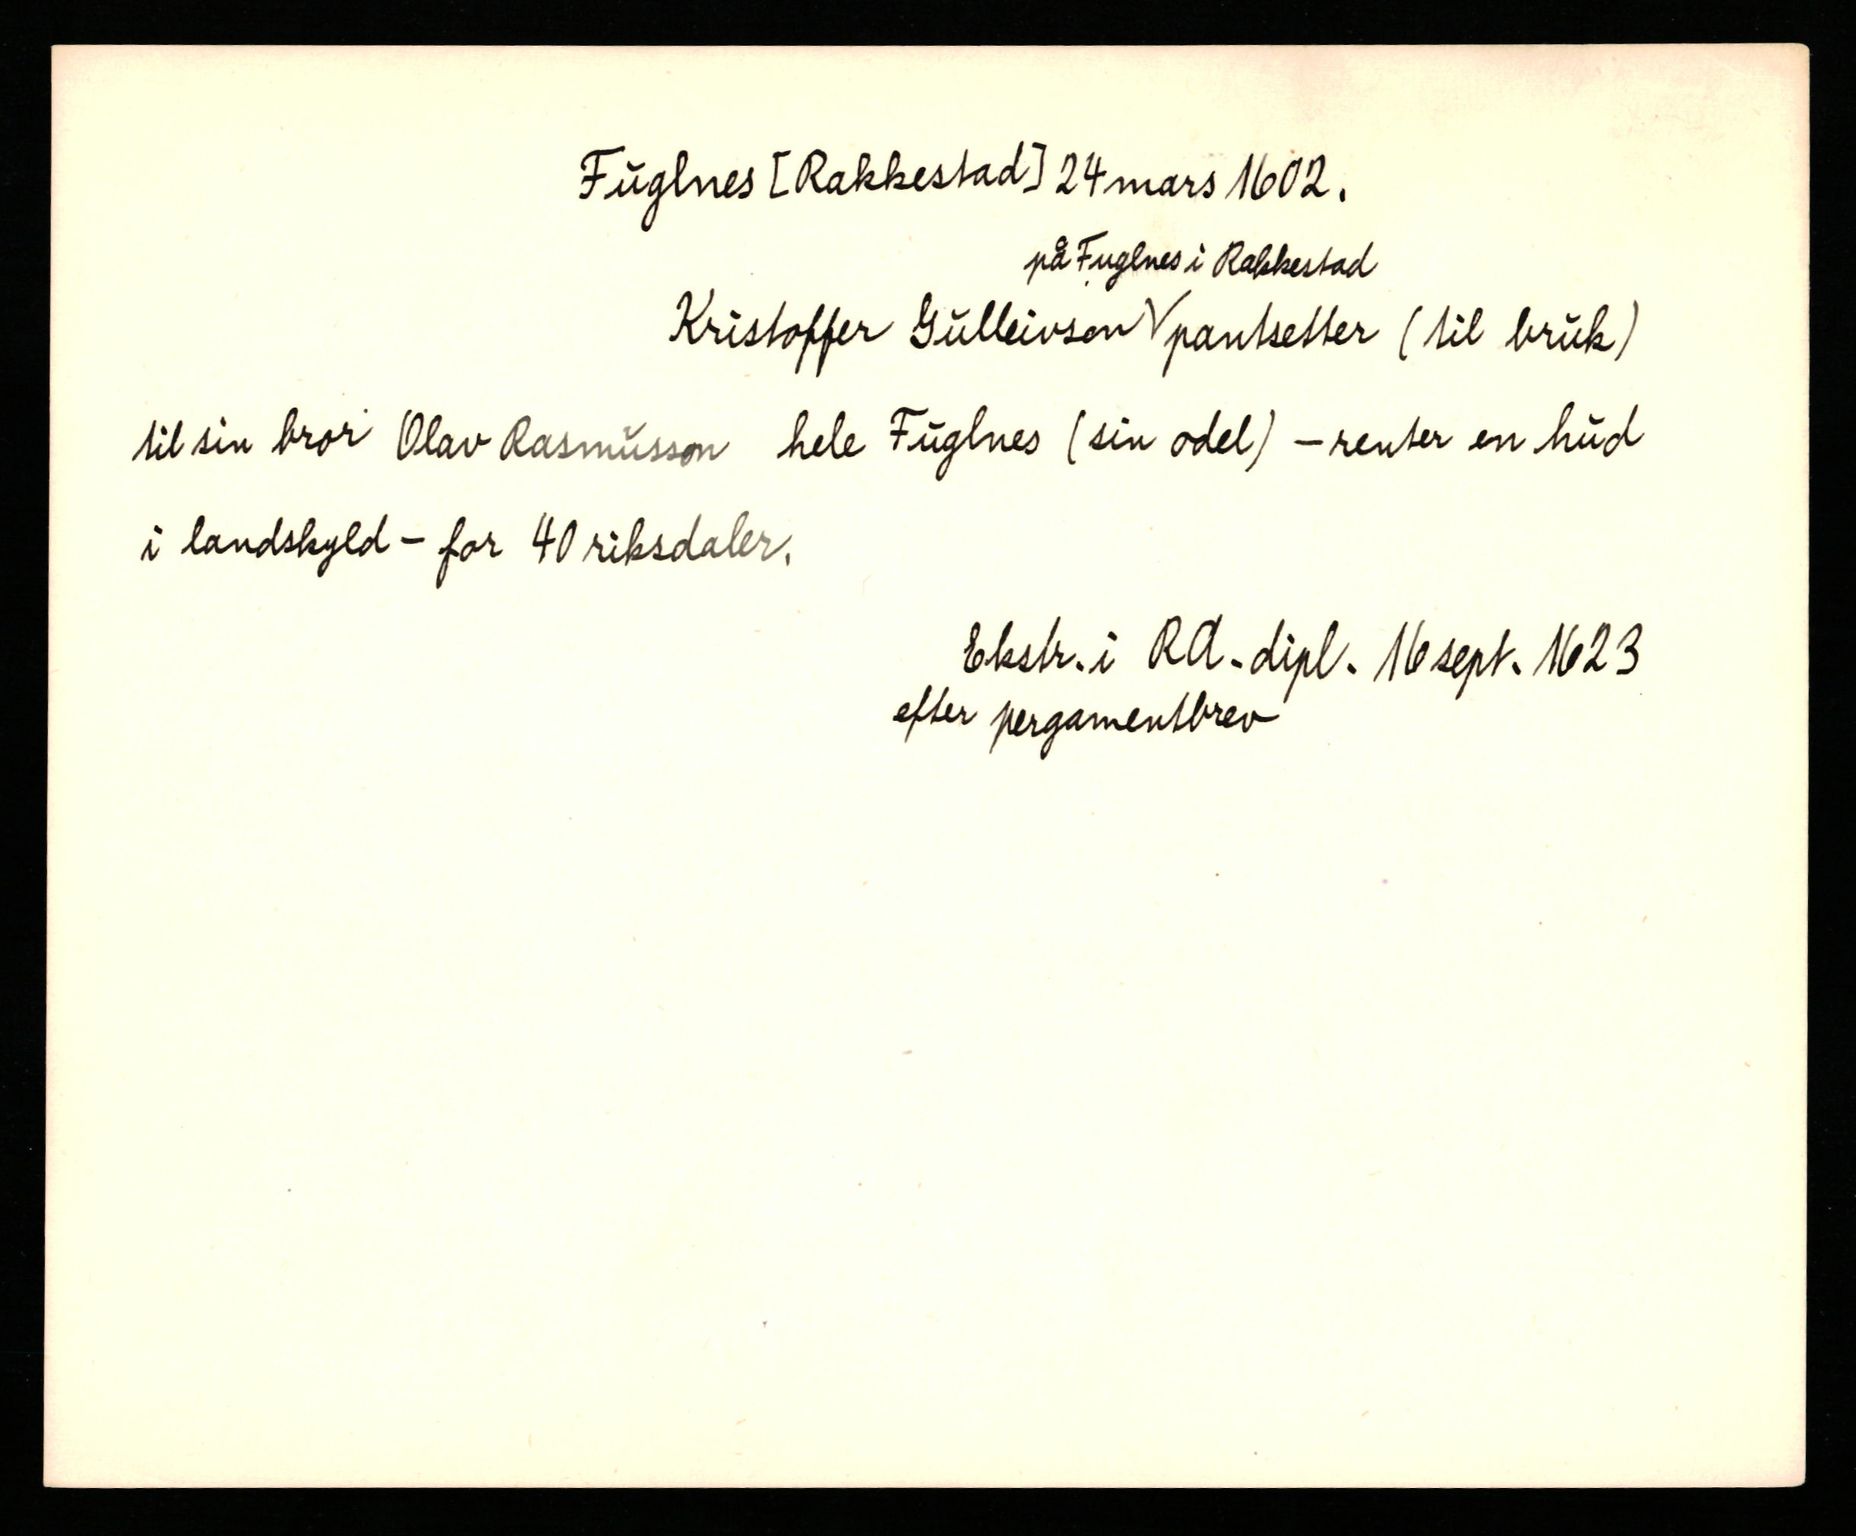 Fuglnes [Rakkestad] 24 mars 1602.
på Fuglnes i Rakkestad
Kristoffer Gulleivson √ pantsetter (til bruk)
til sin bror Olav Rasmusson hele Fuglnes (sin odel) – renter en hud
i landskyld – for 40 riksdaler.
Ekstr. i RA. dipl. 16 sept. 1623
efter pergamentbrev